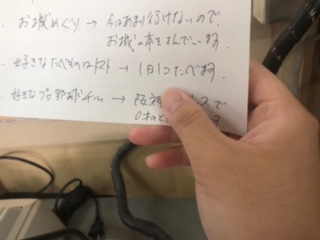 お城めぐり → 今はあまり行けないので、
お城の本をよんでいます。
好きなたべものはトマト → 1日1つたべます。
好きなプロ野球チーム → 阪神 スで